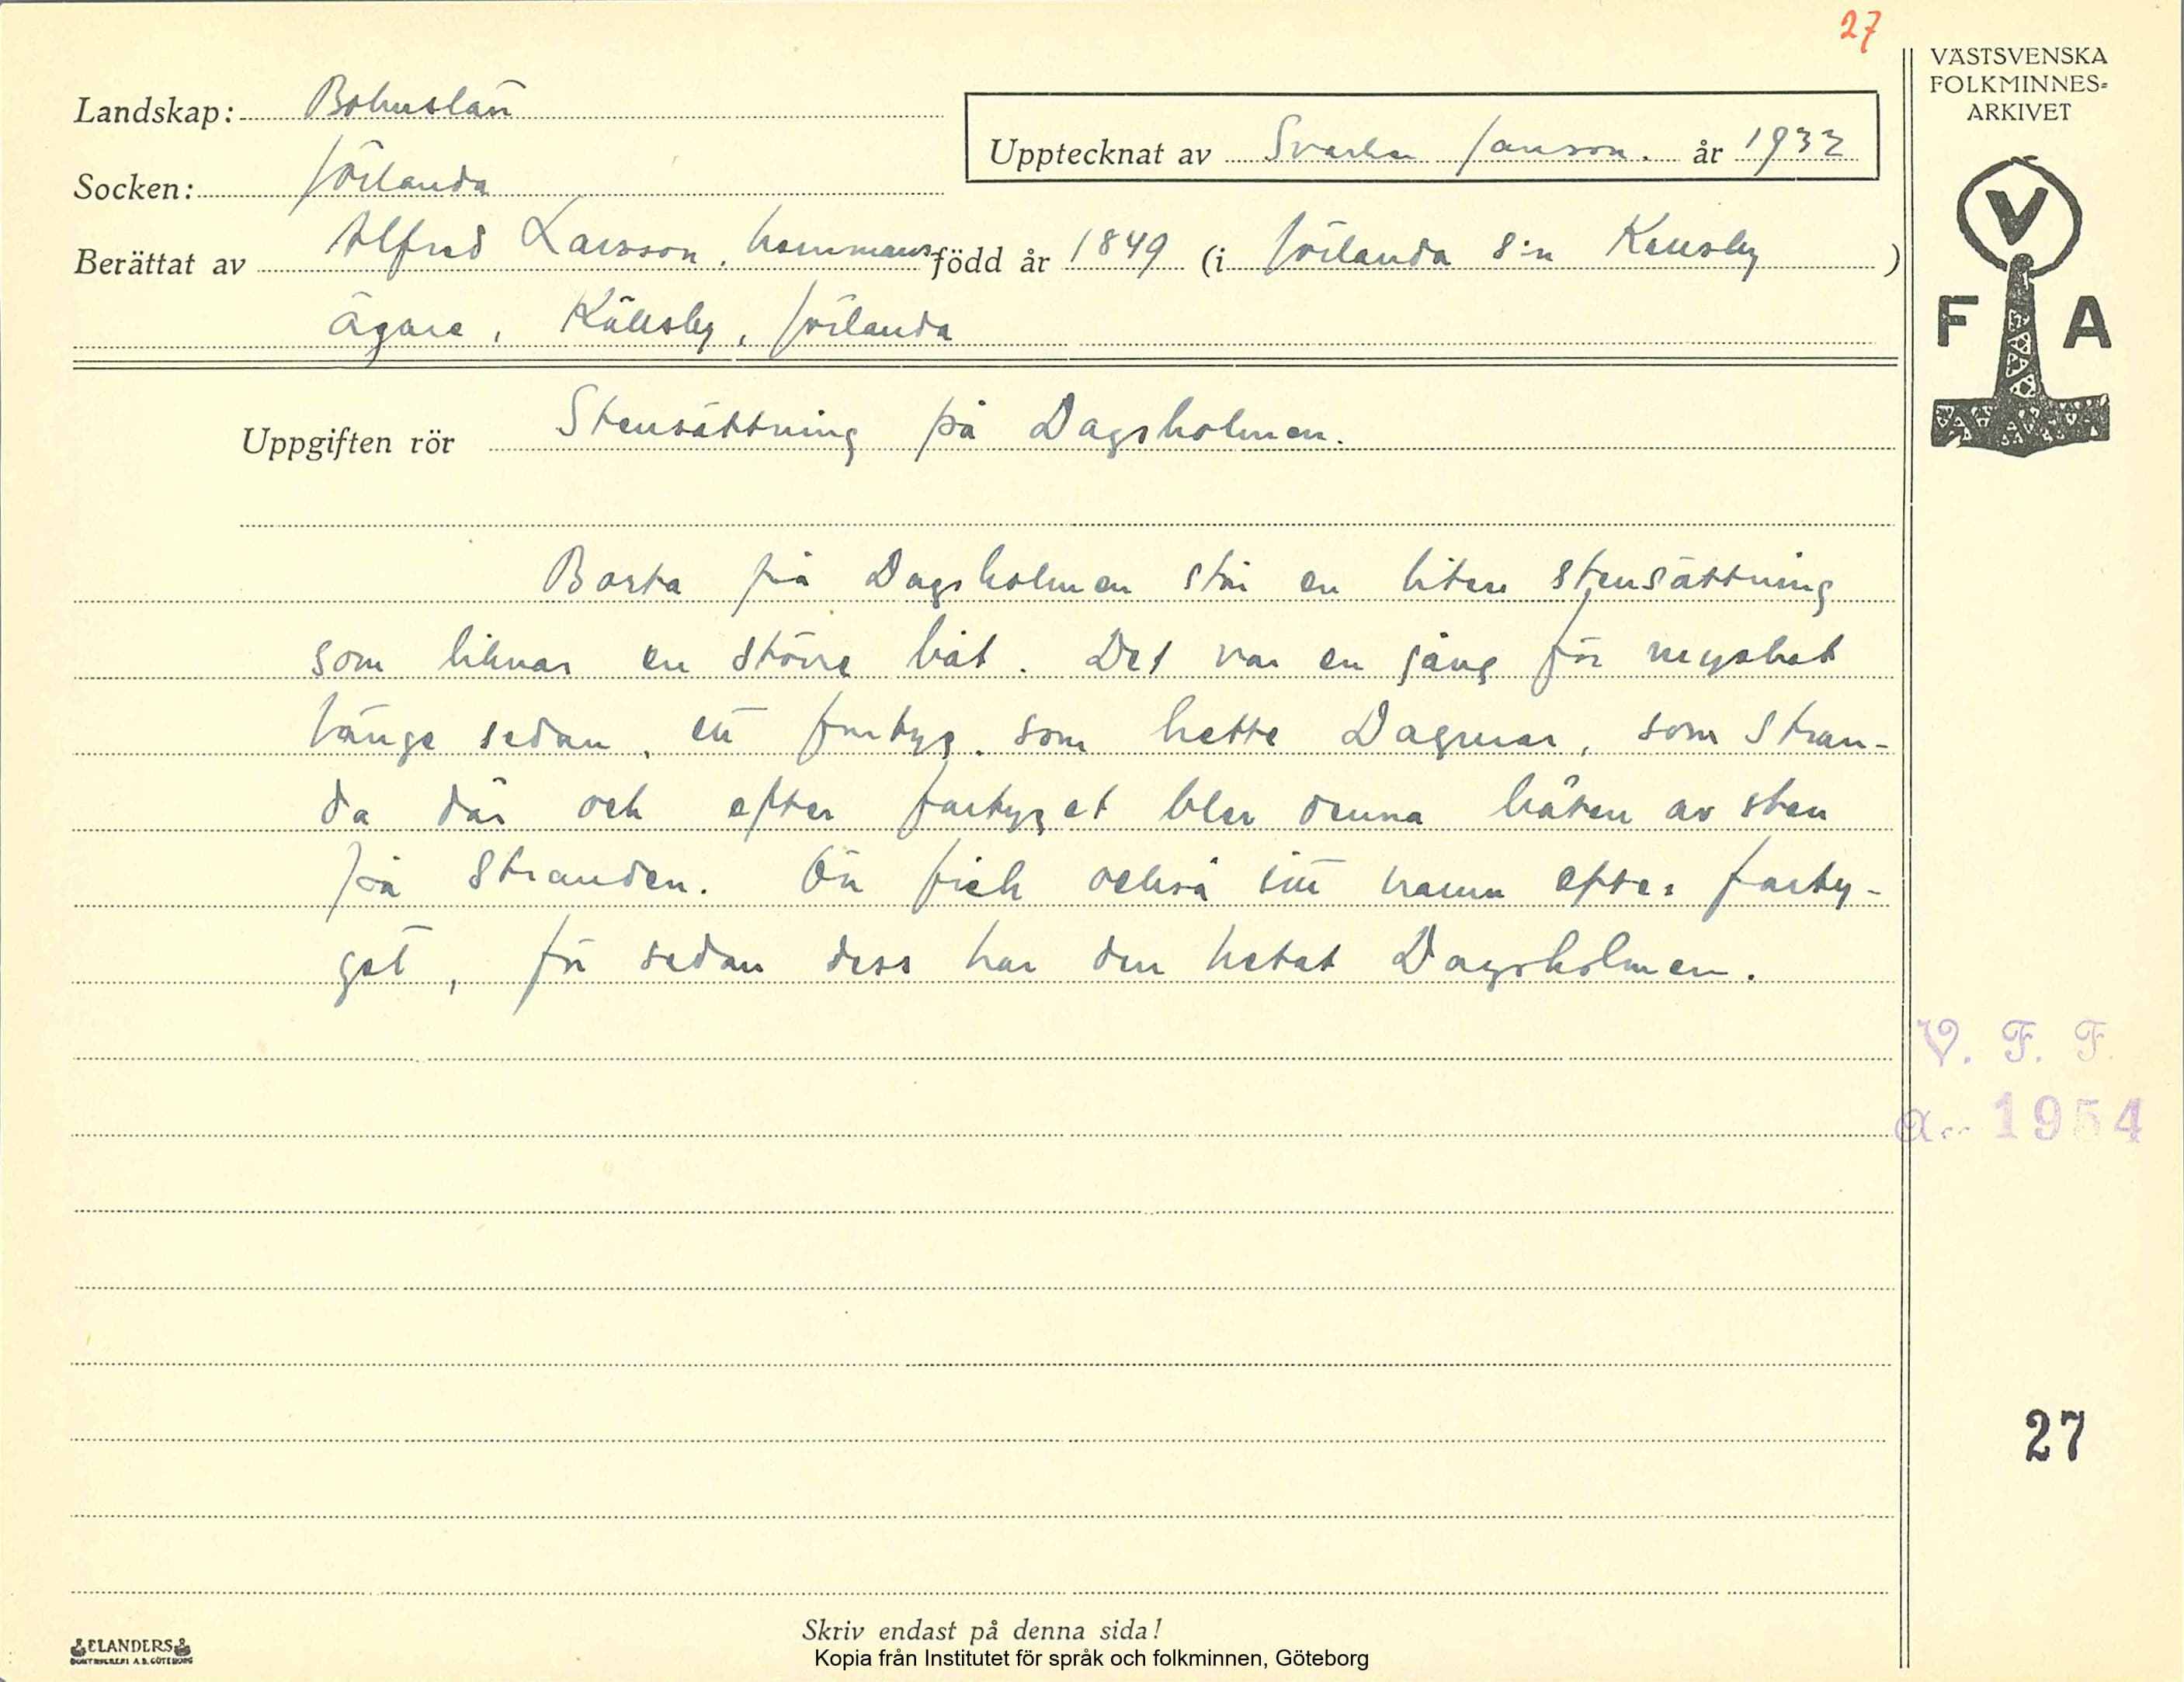 27
VÄSTSVENSKA
FOLKMINNES-
ARKIVET
Landskap: Bohuslän
Upptecknat av Sverker Janson. år 1932
Socken: Jörlanda
Berättat av Alfred Larsson, hemmans född år 1849 (i Jörlanda s:n Källsby )
ägare, Källsby, Jörlanda
V
F A
Uppgiften rör Stensättning på Dagsholmen.
Borta på Dagsholmen står en liten stensättning
som liknar en större båt. Det var en gång för mycket
länge sedan, ett fartyg, som hette Dagmar, som stran-
da där och efter fartyget blev denna båten av sten
på stranden. Ön fick också sitt namn efter farty-
get, för sedan dess har den hetat Dagsholmen.
V. F. F.
a.. 1954
27
Skriv endast på denna sida!
ELANDERS
BOKTRYCKERI A.B. GÖTEBORG
Kopia från Institutet för språk och folkminnen, Göteborg